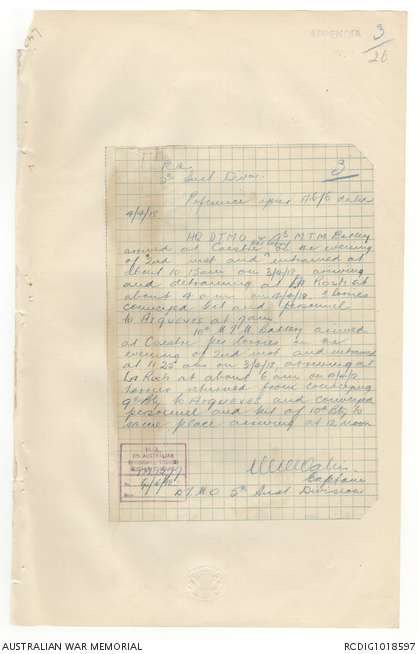 APPENDIX 3
/26
3
5th Aust Divn.
Reference your dated
4/4/18
HQ DTMO & 9th M.T.M. Battery
arrived at Caestre on the evening
of 2nd inst and entrained at
about 10.15am on 3/4/18, arriving
and detraining at
about 4 a.m. on
conveyed kit and personnel
to Arqueves at
10th M.T.M. Battery arrived
at Caestre per lorries on the
evening of 2nd inst and entrained
at 11.25 am on 3/4/18 arriving at
at about 6 am on 4/4/18
Lorries returned from conveying
9th Bty to Arqueves and conveyed
personnel and kit of 10th Bty to
same place arriving at 12 noon
5th AUSTRALIAN
No
4/4/18
Captain
DTMO 5th Aust Division
AUSTRALIAN WAR MEMORIAL
RCDIG1018597